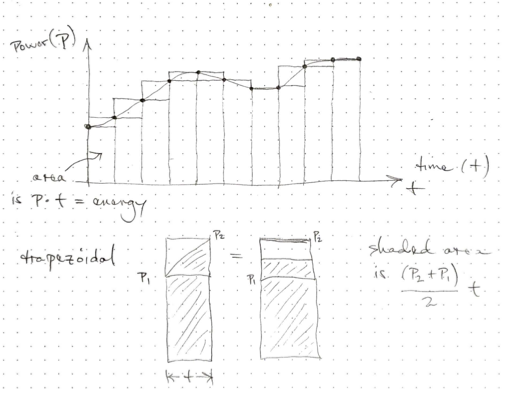 Power (P)
time (t)
t
area
is P·t = energy
trapezoidal
P1
P2
=
P1
P2
shaded area
is (P2+P1)
2
t
t